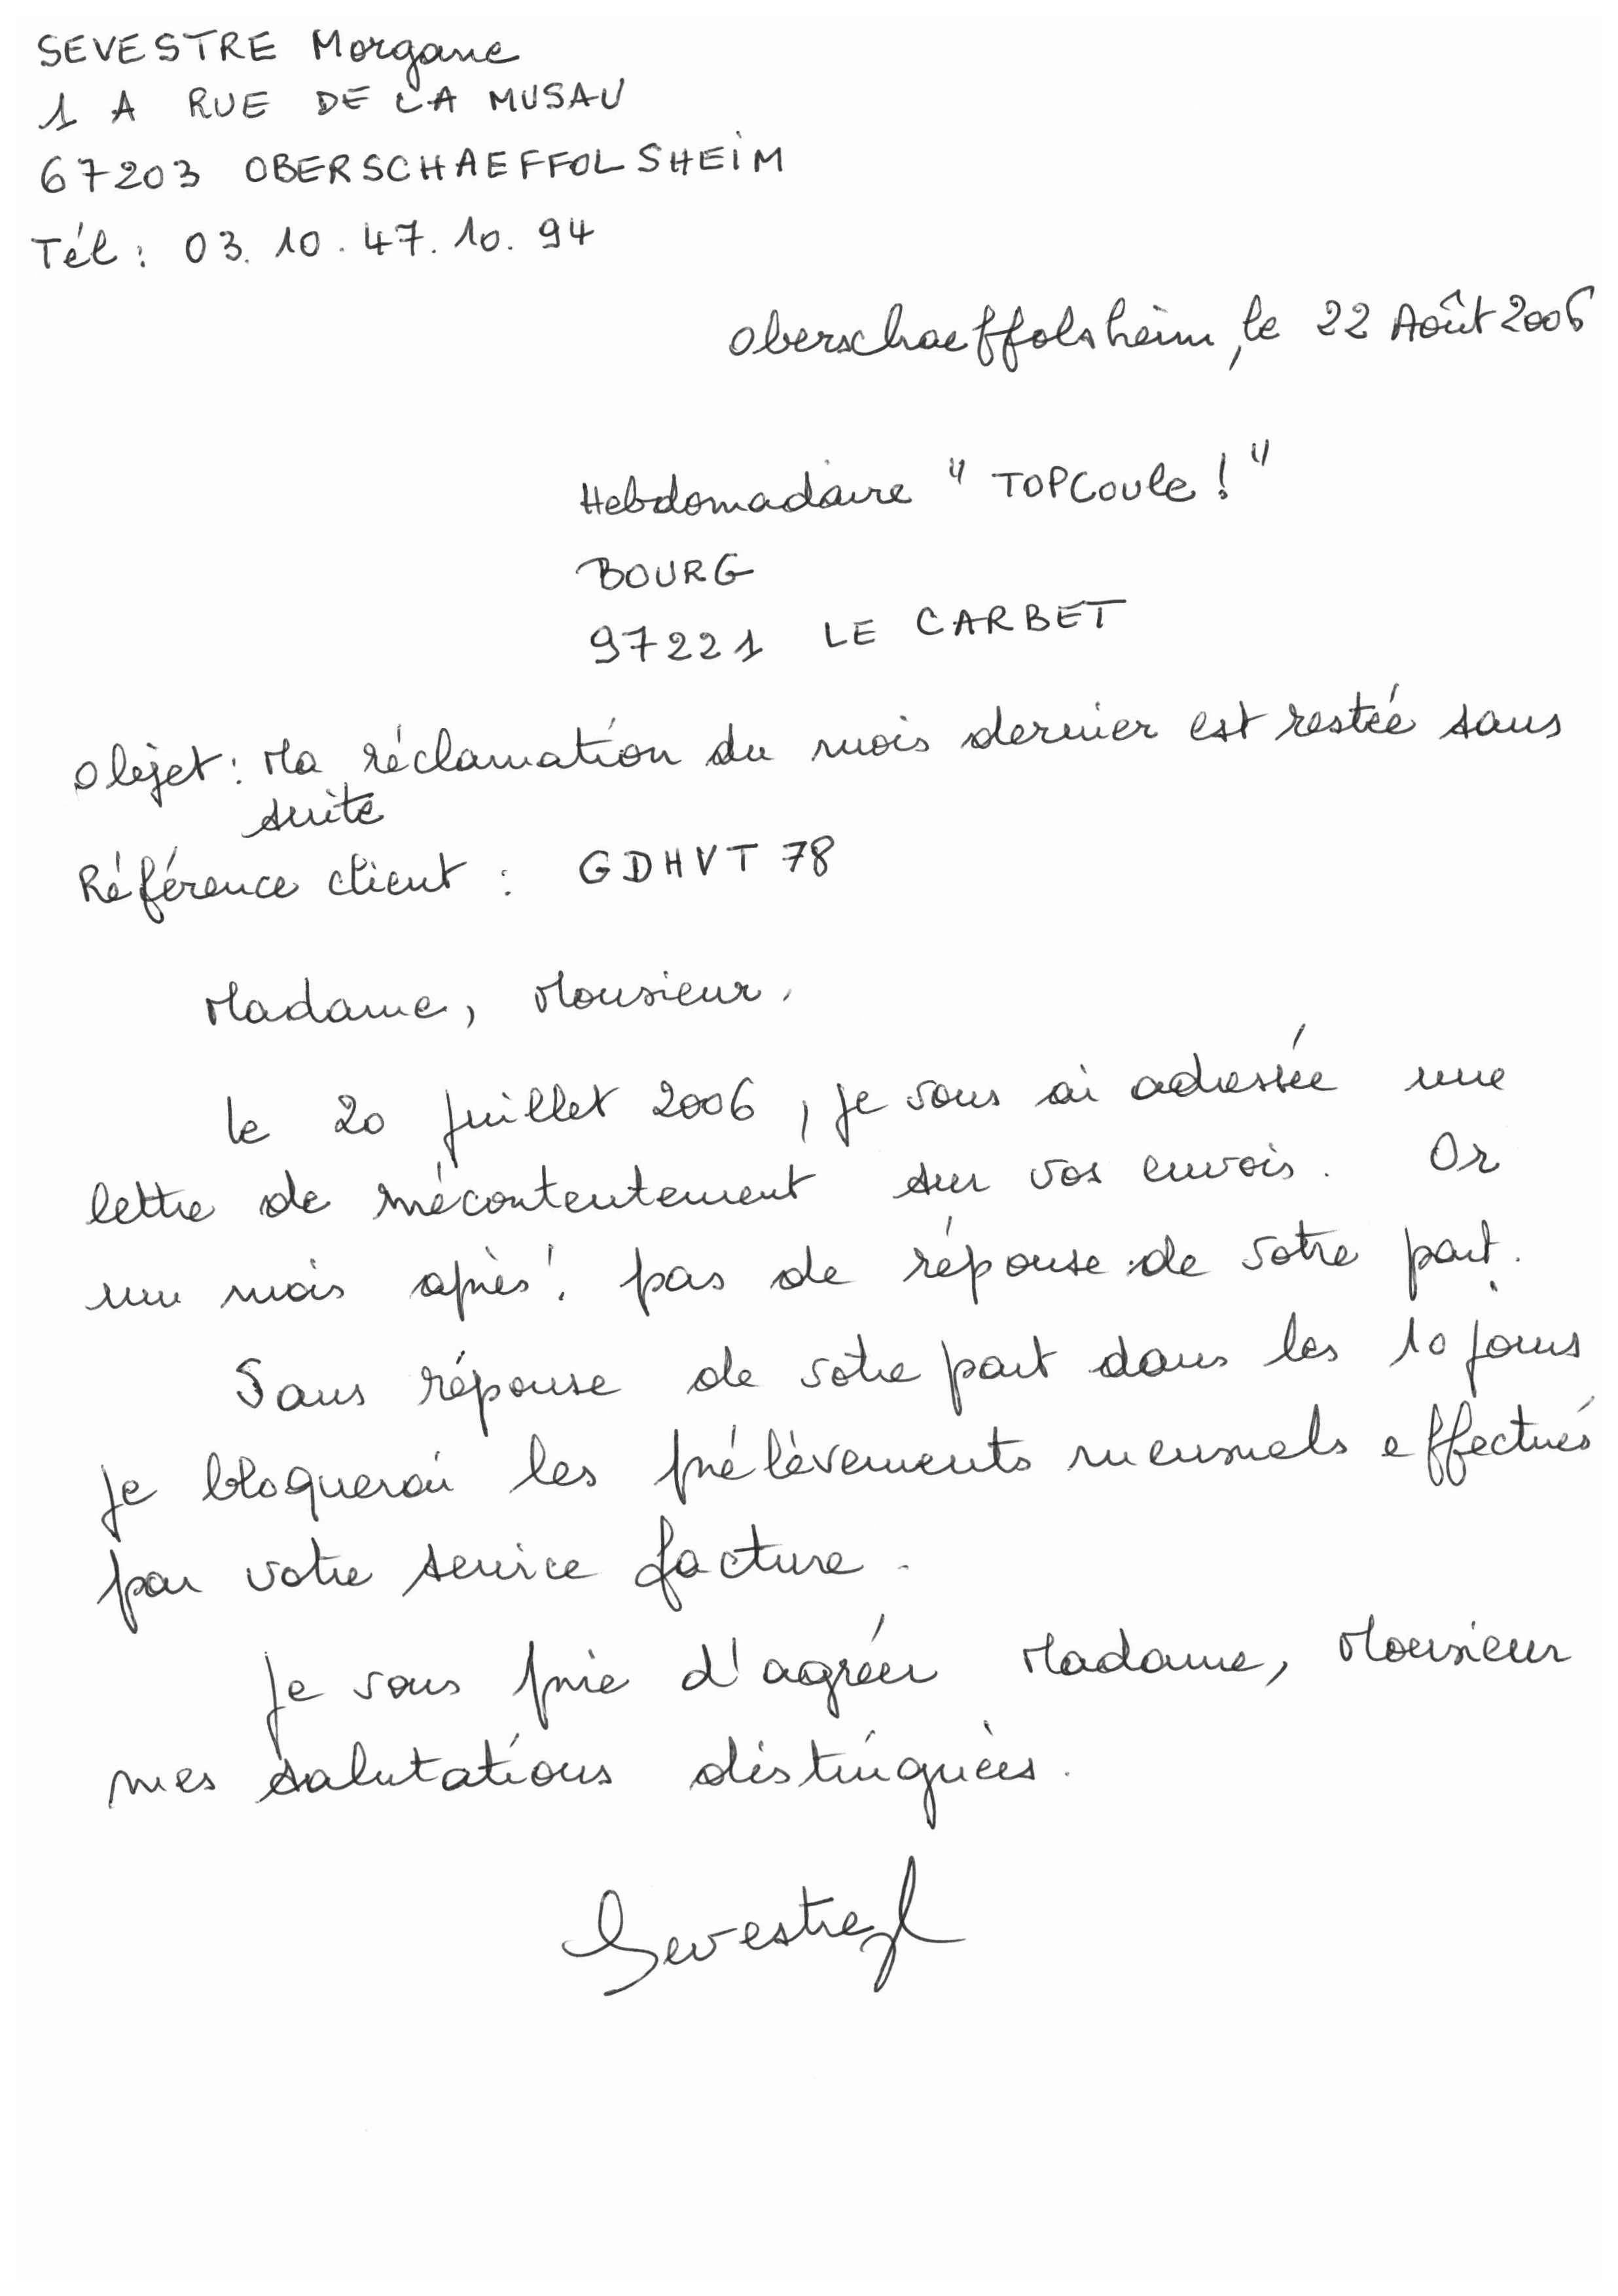 SEVESTRE Morgane
1 A RUE DE LA MUSAU
67203 OBERSCHAEFFOLSHEIM
Tél : 03. 10. 47. 10. 94
Oberschaeffolsheim, le 22 Août 2006
Hebdomadaire " TOPCoule ! "
BOURG
97221 LE CARBET
Objet : Ma réclamation du mois dernier est restée sans
suite
Référence client : GDHVT 78
Madame, Monsieur,
Le 20 juillet 2006, je vous ai adressée une
lettre de mécontentement sur vos envois. Or
un mois après ! pas de réponse de votre part.
Sans réponse de votre part dans les 10 jours
je bloquerai les prélèvements mensuels effectués
par votre service facture.
Je vous prie d'agréer Madame, Monsieur
mes salutations distinguées.
Sevestre